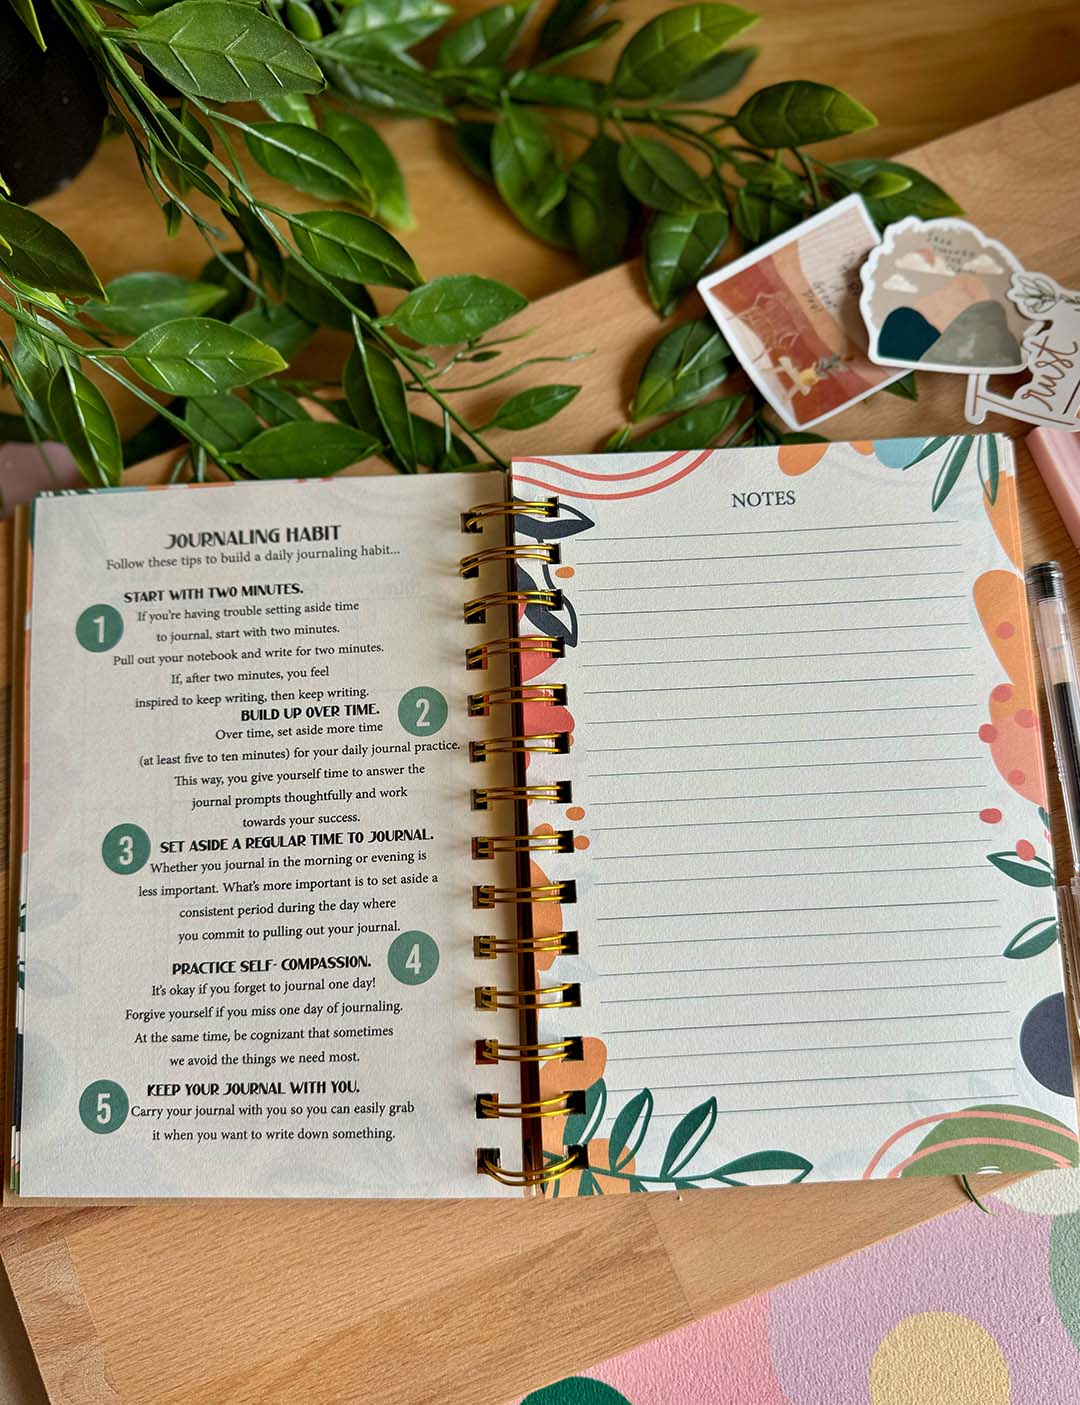 JOURNALING HABIT
Follow these tips to build a daily journaling habit...
START WITH TWO MINUTES.
1
If you're having trouble setting aside time
to journal, start with two minutes.
Pull out your notebook and write for two minutes.
If, after two minutes, you feel
inspired to keep writing, then keep writing.
BUILD UP OVER TIME.
2
Over time, set aside more time
(at least five to ten minutes) for your daily journal practice.
This way, you give yourself time to answer the
journal prompts thoughtfully and work
towards your success.
3
SET ASIDE A REGULAR TIME TO JOURNAL.
Whether you journal in the morning or evening is
less important. What's more important is to set aside a
consistent period during the day where
you commit to pulling out your journal.
PRACTICE SELF- COMPASSION.
4
It's okay if you forget to journal one day!
Forgive yourself if you miss one day of journaling.
At the same time, be cognizant that sometimes
we avoid the things we need most.
5
KEEP YOUR JOURNAL WITH YOU.
Carry your journal with you so you can easily grab
it when you want to write down something.
NOTES
Trust